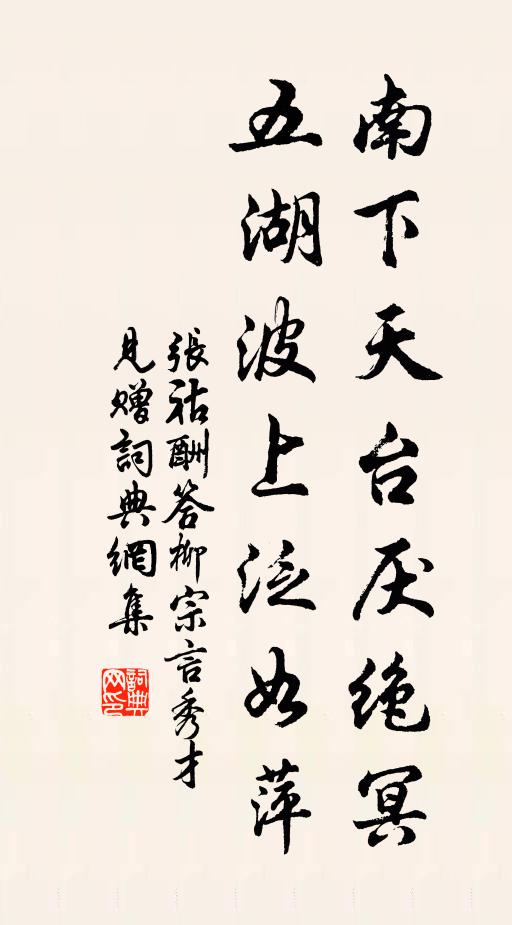 南下天台厌绝冥
五湖波上泛如萍
張祜酬答柳宗言秀才
見贈詞典網集
詞典网印